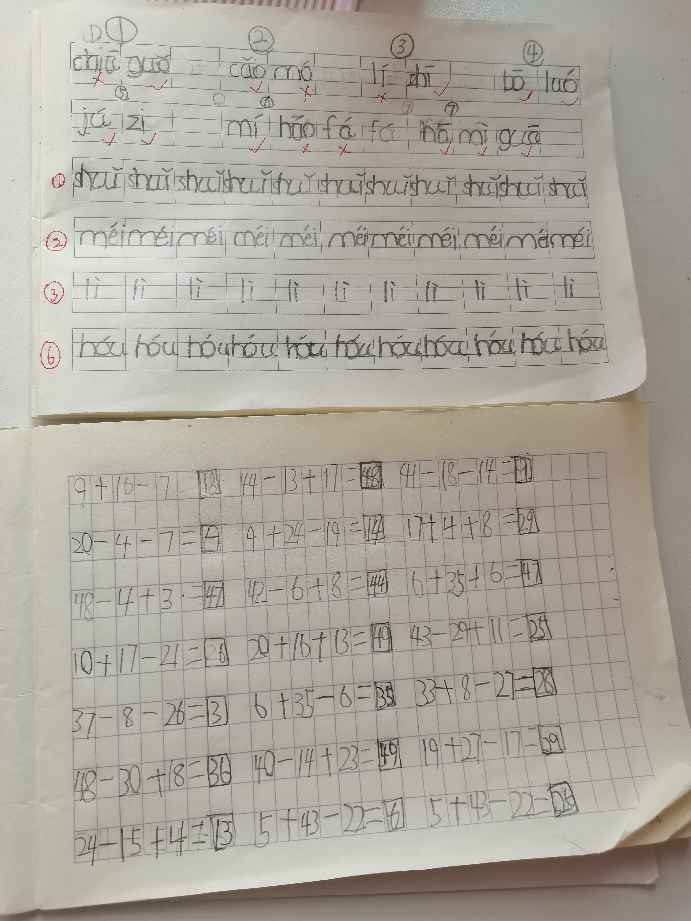 ① ② ③ ④
guǒ cǎo mó lí zhī bō luó
⑤ ⑥ ⑦
jú zi mí hǎo fá fá hā mì guā
① shuǐ shuǐ shuǐ shuǐ shuǐ shuǐ shuǐ shuǐ shuǐ shuǐ shuǐ
② méi méi méi méi méi méi méi méi méi méi méi
③ lì lì lì lì lì lì lì lì lì lì lì
⑥ hóu hóu hóu hóu hóu hóu hóu hóu hóu hóu hóu
9+16-7= 44-13+17=48 41-18-14=9
20-4-7= 9+24-19=14 17+4+8=29
48-4+3=47 42-6+8=44 6+35+6=47
10+17-21= 20+16+13=49 43-29+11=25
37-8-26=3 6+35-6=35 33+8-27=
48-30+18=36 40-14+23=49 19+27-17=29
24-15+4=13 5+43-22= 5+43-22=26